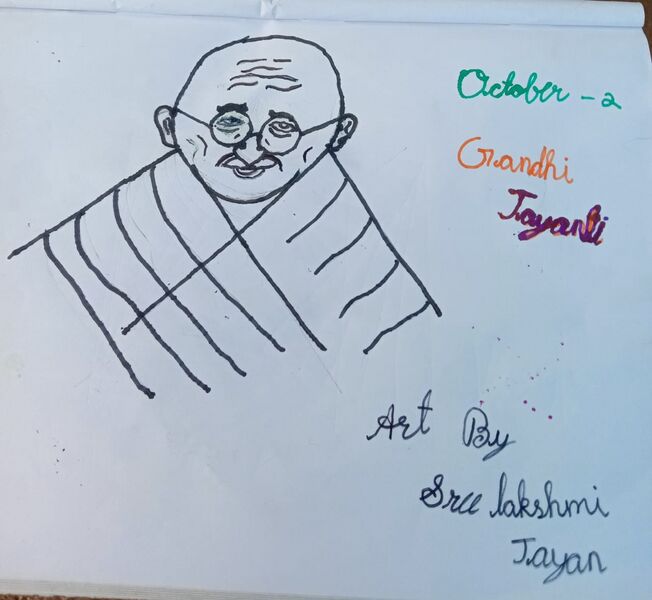 October - 2
Gandhi
Jayanti
Art By
Sree lakshmi
Jayan